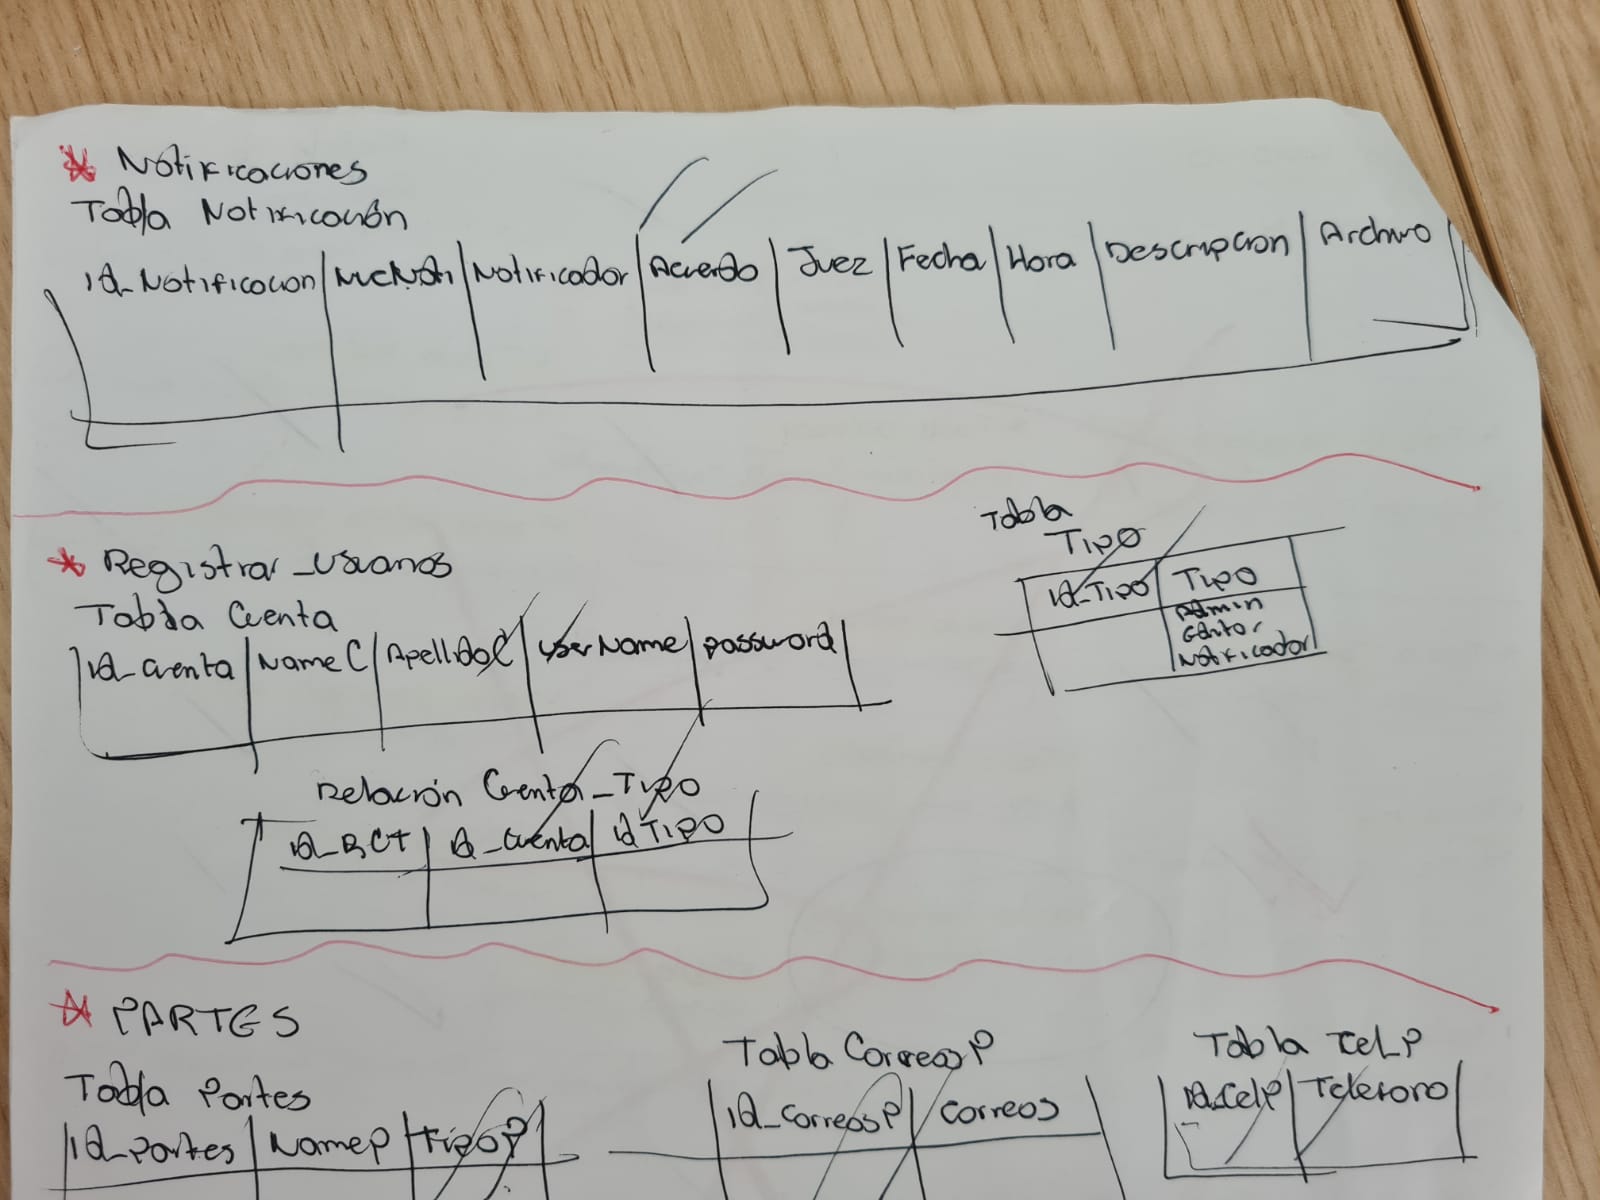 Notificaciones
Tabla Notificación
id_Notificacion | | Notificador | Acuerdo | Juez | Fecha | Hora | Descripcion | Archivo
Registrar_usuarios
Tabla Cuenta
id_cuenta | NameC | ApellidoC | UserName | password
Tabla
Tipo
id_Tipo | Tipo
Admin
Gestor
Notificador
Relación Cuenta_Tipo
id_RCT | id_cuenta | id Tipo
PARTES
Tabla Partes
id_partes | NameP | TipoP
Tabla CorreosP
id_correosP | correos
Tabla TelP
id_TelP | Telefono